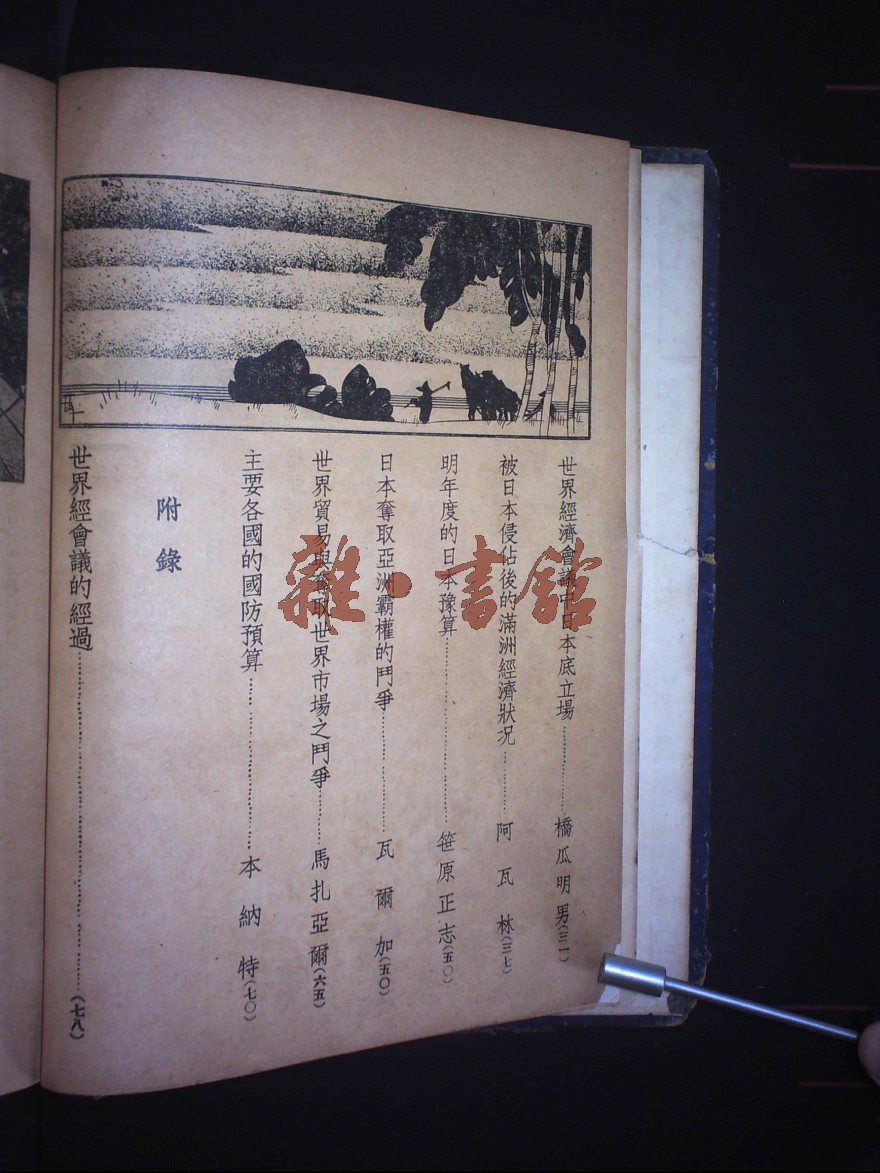 世界經濟會議中日本底立場……………橋瓜明男(三一)
被日本侵佔後的滿洲經濟狀況……………阿瓦林(三七)
明年度的日本豫算……………笹原正志(五〇)
日本奪取亞洲霸權的鬥爭……………瓦爾加(五〇)
世界貿易與奪取世界市場之鬥爭……………馬扎亞爾(六五)
主要各國的國防預算……………本納特(七〇)
附錄
世界經會議的經過……………(七八)
雜·書館